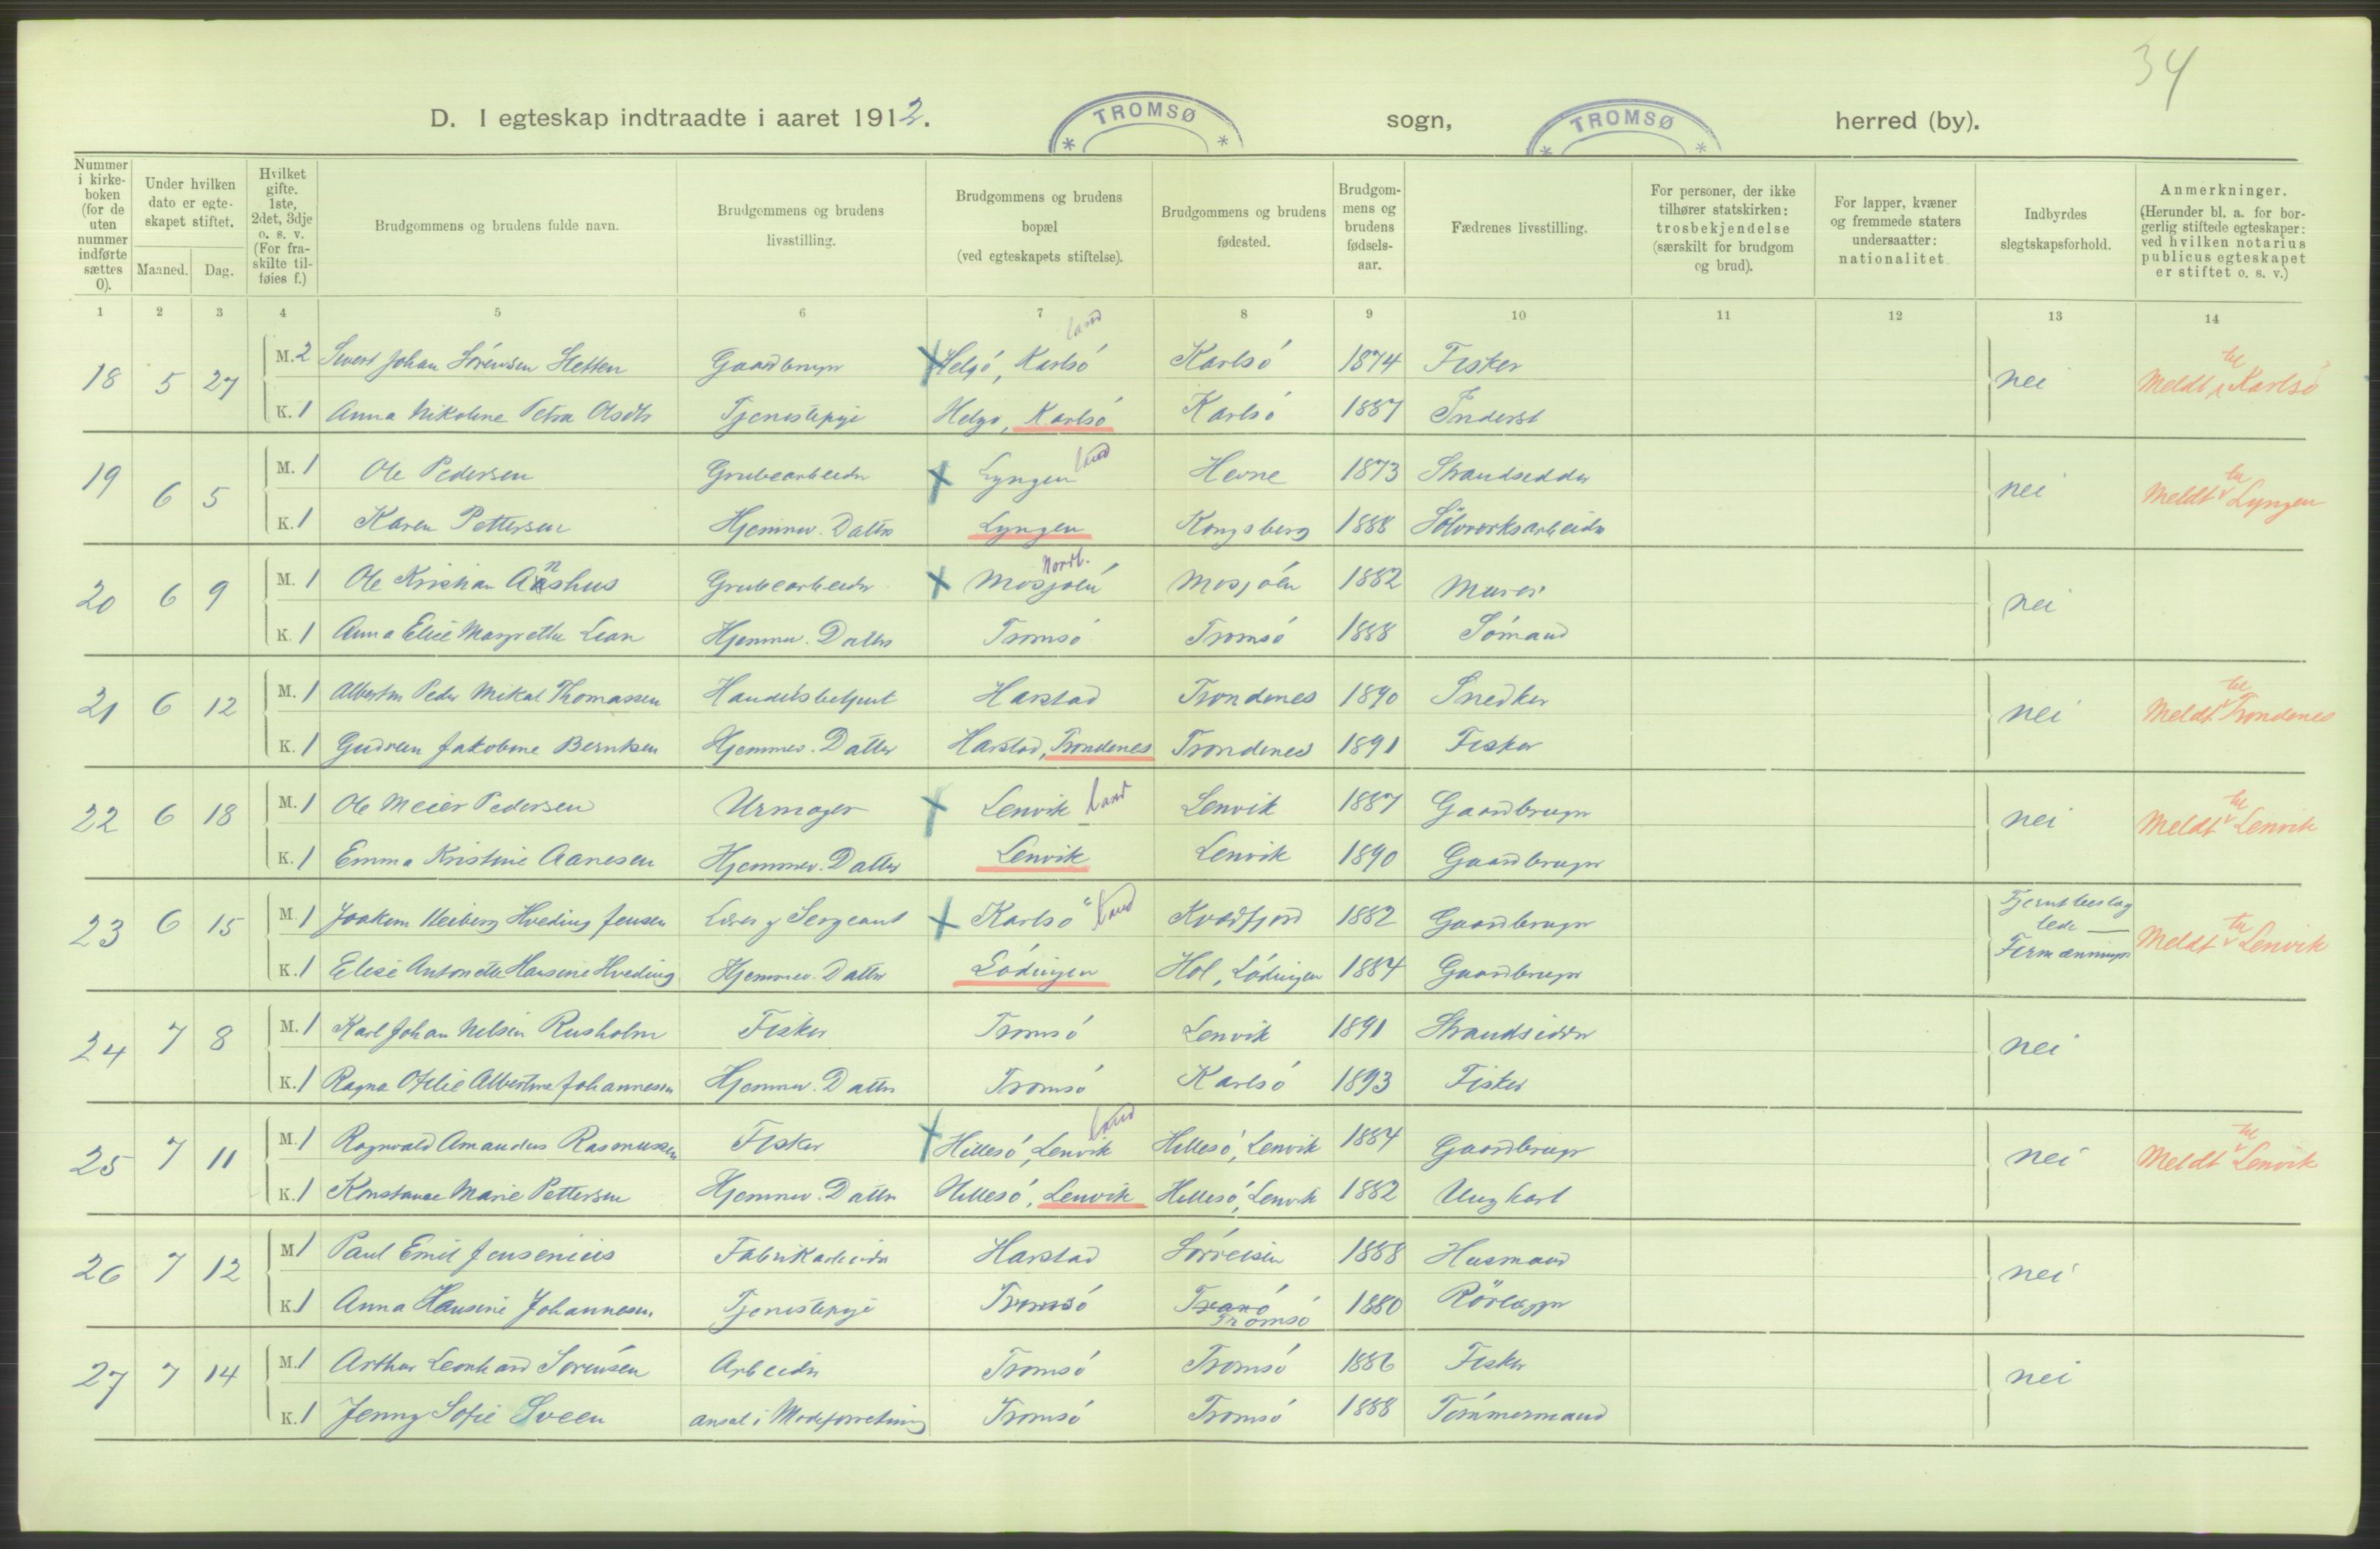 34
D. I egteskap indtraadte i aaret 1912. TROMSØ sogn, TROMSØ herred (by).
Nummer i kirkeboken (for de uten nummer indførte sættes 0).
Under hvilken dato er egteskapet stiftet.
Maaned. Dag.
Hvilket gifte. 1ste, 2det, 3dje o. s. v. (For fraskilte tilføies f.)
Brudgommens og brudens fulde navn.
Brudgommens og brudens livsstilling.
Brudgommens og brudens bopæl (ved egteskapets stiftelse).
Brudgommens og brudens fødested.
Brudgommens og brudens fødselsaar.
Fædrenes livsstilling.
For personer, der ikke tilhører statskirken: trosbekjendelse (særskilt for brudgom og brud).
For lapper, kvæner og fremmede staters undersaatter: nationalitet
Indbyrdes slegtskapsforhold.
Anmerkninger. (Herunder bl. a. for borgerlig stiftede egteskaper: ved hvilken notarius publicus egteskapet er stiftet o. s. v.)
1 2 3 4 5 6 7 8 9 10 11 12 13 14
18 5 27 M. 2 Johan Sørensen Gaardbruger Helgö, Karlsö land Karlsö 1874 Fisker nei Meldt til Karlsö
K. 1 Anna Nikoline Petra Olsdtr Tjenestepige Helgö, Karlsö Karlsö 1887 Inderst
19 6 5 M. 1 Ole Pedersen Grubearbeider Lyngen land Hevne 1873 Strandsidder nei Meldt til Lyngen
K. 1 Karen Pettersen Hjemmev. Datter Lyngen Kongsberg 1888 Sölvverksarbeider
20 6 9 M. 1 Ole Kristian Aanshus Grubearbeider Mosjöen Nordl. Mosjöen 1882 Murer nei
K. 1 Anna Elise Margrethe Lian Hjemmev. Datter Tromsö Tromsö 1888 Sömand
21 6 12 M. 1 Peder Mikal Thomassen Handelsbetjent Harstad Trondenes 1890 Snedker nei Meldt til Trondenes
K. 1 Gudrun Jakobine Berntsen Hjemmev. Datter Harstad, Trondenes Trondenes 1891 Fisker
22 6 18 M. 1 Ole Meier Pedersen Urmager Lenvik land Lenvik 1887 Gaardbruger nei Meldt til Lenvik
K. 1 Emma Kristine Aanesen Hjemmev. Datter Lenvik Lenvik 1890 Gaardbruger
23 6 15 M. 1 Joakim Heiberg Hveding Jensen Lærer og Sergeant Karlsö land Kvædfjord 1882 Gaardbruger Fjernt beslægtede — Firmænninger Meldt til Lenvik
K. 1 Elise Antonette Hansine Hveding Hjemmev. Datter Lödingen Hol, Lödingen 1884 Gaardbruger
24 7 8 M. 1 Karl Johan Nilsen Rusholm Fisker Tromsö Lenvik 1891 Strandsidder nei
K. 1 Ragna Ofelie Albertine Johannesen Hjemmev. Datter Tromsö Karlsö 1893 Fisker
25 7 11 M. 1 Ragnvald Amandus Rasmussen Fisker Hillesö, Lenvik land Hillesö, Lenvik 1884 Gaardbruger nei Meldt til Lenvik
K. 1 Konstanse Marie Pettersen Hjemmev. Datter Hillesö, Lenvik Hillesö, Lenvik 1882 Ungkarl
26 7 12 M 1 Paul Emil Jensenius Fabrikarbeider Harstad Sörreisen 1888 Husmand nei
K. 1 Anna Hansine Johannesen Tjenestepige Tromsö Tranö Tromsö 1880 Rörlægger
27 7 14 M. 1 Arthur Leonhard Sörensen Arbeider Tromsö Tromsö 1886 Fisker nei
K. 1 Jenny Sofie Sveen ansat i Modeforretning Tromsö Tromsö 1888 Tömmermand